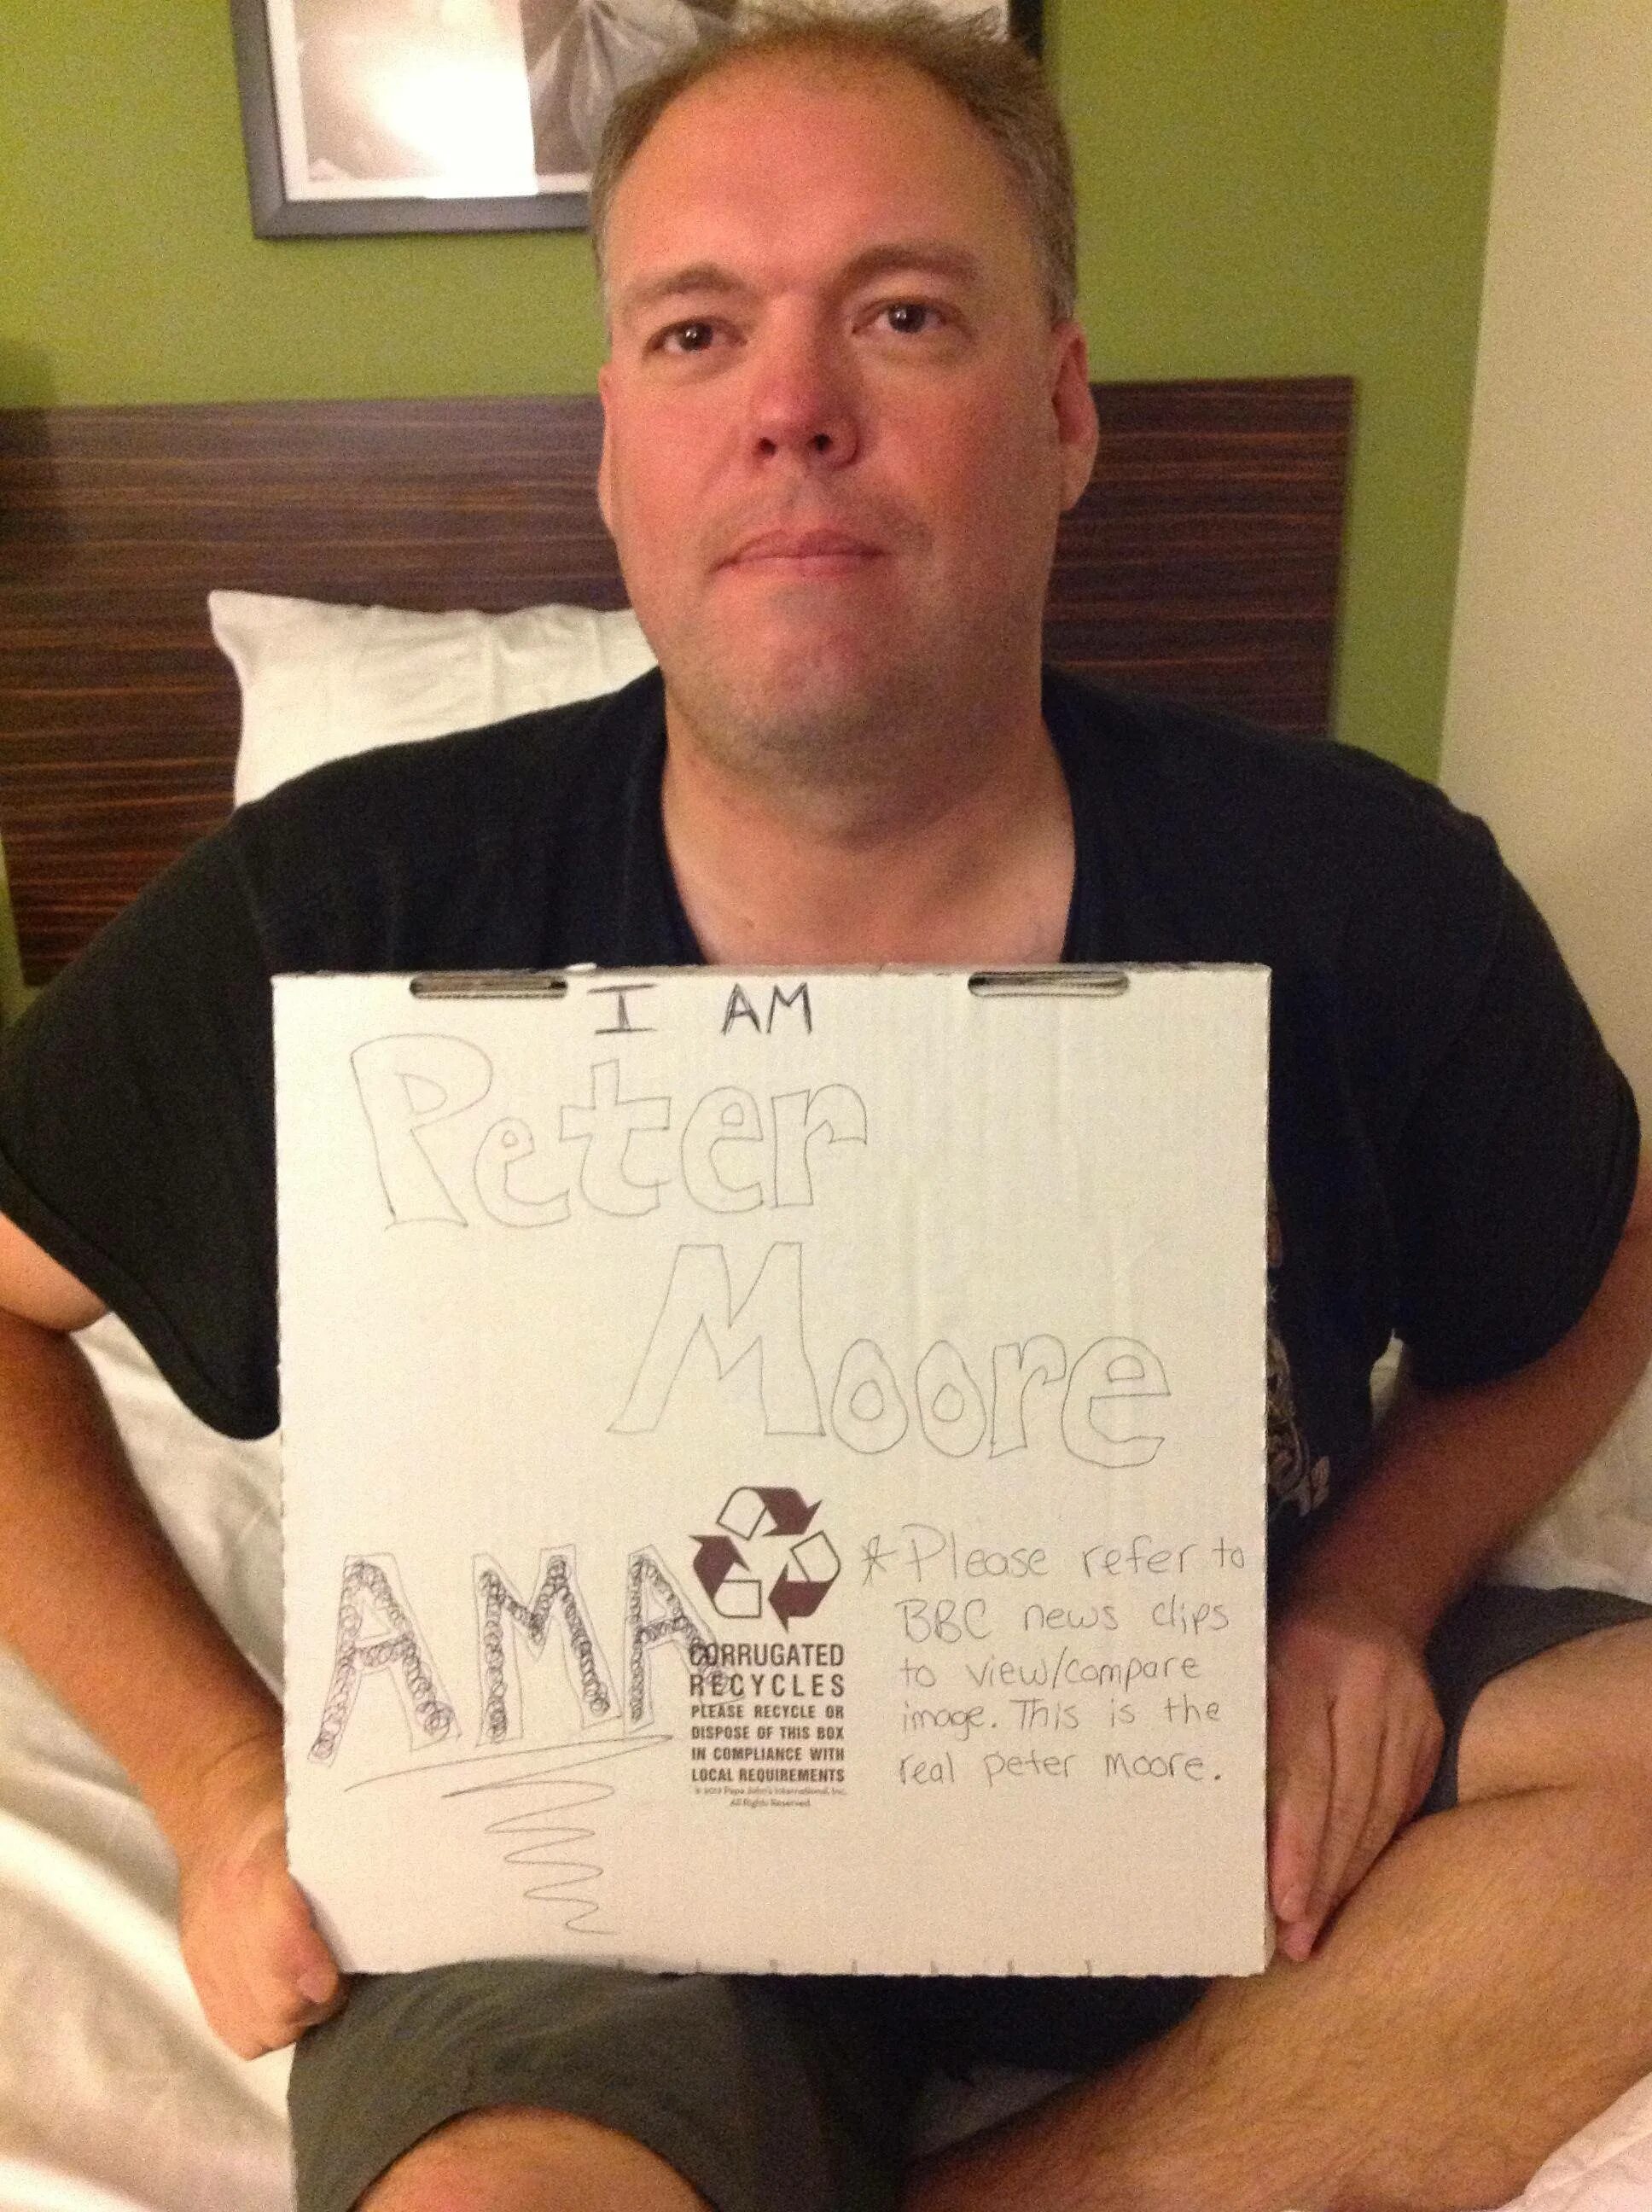 I AM
Peter
Moore
AMA
CORRUGATED
RECYCLES
PLEASE RECYCLE OR
DISPOSE OF THIS BOX
IN COMPLIANCE WITH
LOCAL REQUIREMENTS
© 2012 Papa John's International, Inc.
All Rights Reserved.
*Please refer to
BBC news clips
to view/compare
image. This is the
real peter moore.